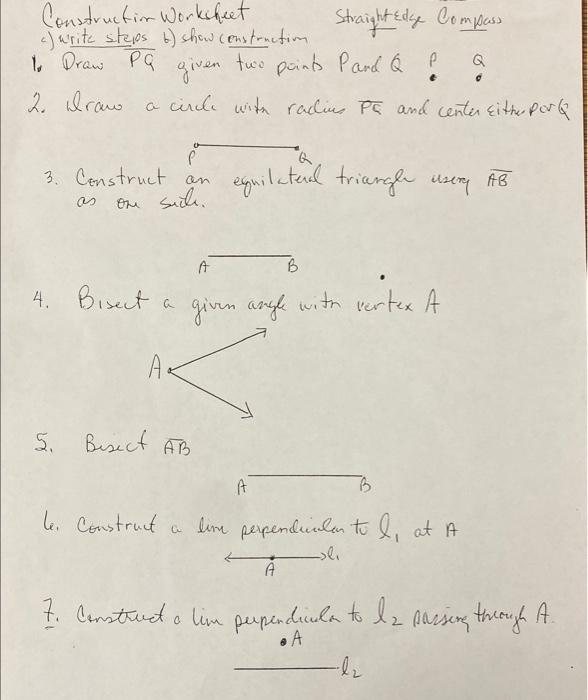 Construction Worksheet Straight Edge Compass
a) write steps b) show construction
1. Draw PQ given two points P and Q P Q
2. Draw a circle with radius PQ and center either P or Q
P Q
3. Construct an equilateral triangle using AB
as one side.
A B
4. Bisect a given angle with vertex A
A
5. Bisect AB
A B
6. Construct a line perpendicular to l₁ at A
l₁
A
7. Construct a line perpendicular to l₂ passing through A.
A
l₂